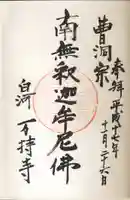 奉拝 平成十七年
十一月二十六日
曹洞宗
南無釈迦牟尼佛
白河 万持寺